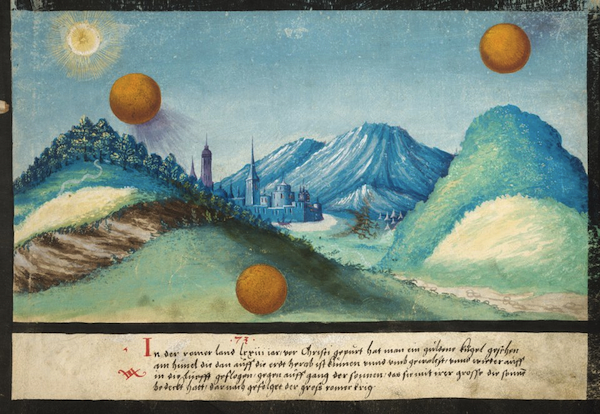 73
In der romer land lxxiii iar vor Christi gepurt hat man ein guldene kugel gesehen
am himel die dan auff die erdt herab ist kumen vnnd vmb gewaltzt vnnd wider auff
in die lufft geflogen gegen auffgang der sonnen das sie mit irer grosse die sonne
bedeckt hatt dar nach gefolget der groß romer krig